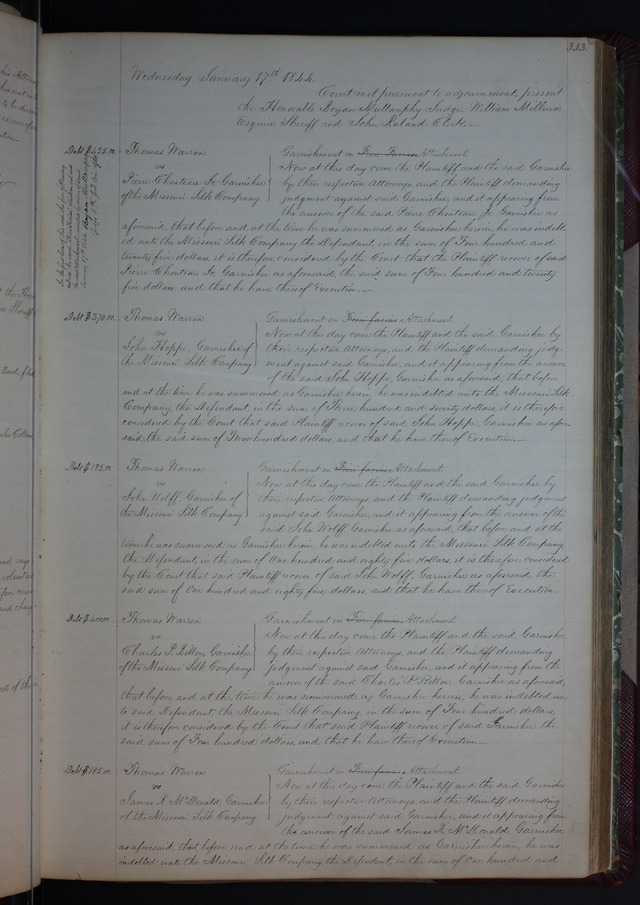 333.
Wednesday January 17th 1844.
Court met pursuant to adjournment, present
the Honorable Bryan Mullanphy, Judge William Milburn
Esquire Sheriff and John Ruland Clerk.
Debt $425.00. Thomas Warren
vs
Pierre Chouteau Jr. Garnishee
of the Missouri Silk Company
Garnishment on Fieri Facias Attachment
Now at this day come the Plaintiff and the said Garnishee
by their respective Attorneys, and the Plaintiff demanding
judgment against said Garnishee, and it appearing from
the answer of the said Pierre Chouteau Jr. Garnishee as
aforesaid, that before and at the time he was summoned as Garnishee herein, he was indebt
ed unto the Missouri Silk Company the Defendant, in the sum of Four hundred and
twenty five dollars, it is therefore considered by the Court that the Plaintiff recover of said
Pierre Chouteau Jr. Garnishee as aforesaid, the said sum of Four hundred and twenty
five dollars, and that he have thereof Execution.
Debt $370.00. Thomas Warren
vs
John Hoppe, Garnishee of
the Missouri Silk Company
Garnishment on Fieri facias Attachment
Now at this day come the Plaintiff and the said Garnishee by
their respective Attorneys, and the Plaintiff demanding judg-
ment against said Garnishee, and it appearing from the answer
of the said John Hoppe, Garnishee as aforesaid, that before
and at the time he was summoned, as Garnishee herein, he was indebted unto the Missouri Silk
Company, the Defendant, in the sum of Three hundred and seventy dollars, it is therefore
considered by the Court that said Plaintiff recover of said John Hoppe, Garnishee as afore
said, the said sum of Three hundred dollars, and that he have thereof Execution.
Debt $185.00 Thomas Warren
vs
John Wolff, Garnishee of
the Missouri Silk Company
Garnishment on Fieri facias Attachment
Now at this day come the Plaintiff and the said Garnishee by
their respective Attorneys and the Plaintiff demanding judgment
against said Garnishee, and it appearing from the answer of the
said John Wolff, Garnishee as aforesaid, that before and at the
time he was summoned as Garnishee herein, he was indebted unto the Missouri Silk Company,
the Defendant, in the sum of One hundred and eighty five dollars, it is therefore considered
by the Court that said Plaintiff recover of said John Wolff, Garnishee as aforesaid, the
said sum of One hundred and eighty five dollars, and that he have thereof Execution
Debt $400.00 Thomas Warren
vs
Charles P. Billon, Garnishee
of the Missouri Silk Company
Garnishment on Fieri facias Attachment
Now at this day come the Plaintiff and the said Garnishee
by their respective Attorneys, and the Plaintiff demanding
judgment against said Garnishee, and it appearing from the
answer of the said Charles P. Billon Garnishee as aforesaid,
that before and at the time he was summoned as Garnishee herein, he was indebted un
to said Defendant, the Missouri Silk Company, in the sum of Four hundred dollars,
it is therefore considered by the Court that said Plaintiff recover of said Garnishee the
said sum of Four hundred dollars, and that he have thereof Execution.
Debt $185.00 Thomas Warren
vs
James R. McDonald, Garnishee
of the Missouri Silk Company
Garnishment on Fieri facias Attachment
Now at this day come the Plaintiff and the said Garnishee
by their respective Attorneys, and the Plaintiff demanding
judgment against said Garnishee, and it appearing from
the answer of the said James R. McDonald, Garnishee
as aforesaid, that before and at the time he was summoned as Garnishee herein, he was
indebted unto the Missouri Silk Company, the Defendant, in the sum of One hundred and